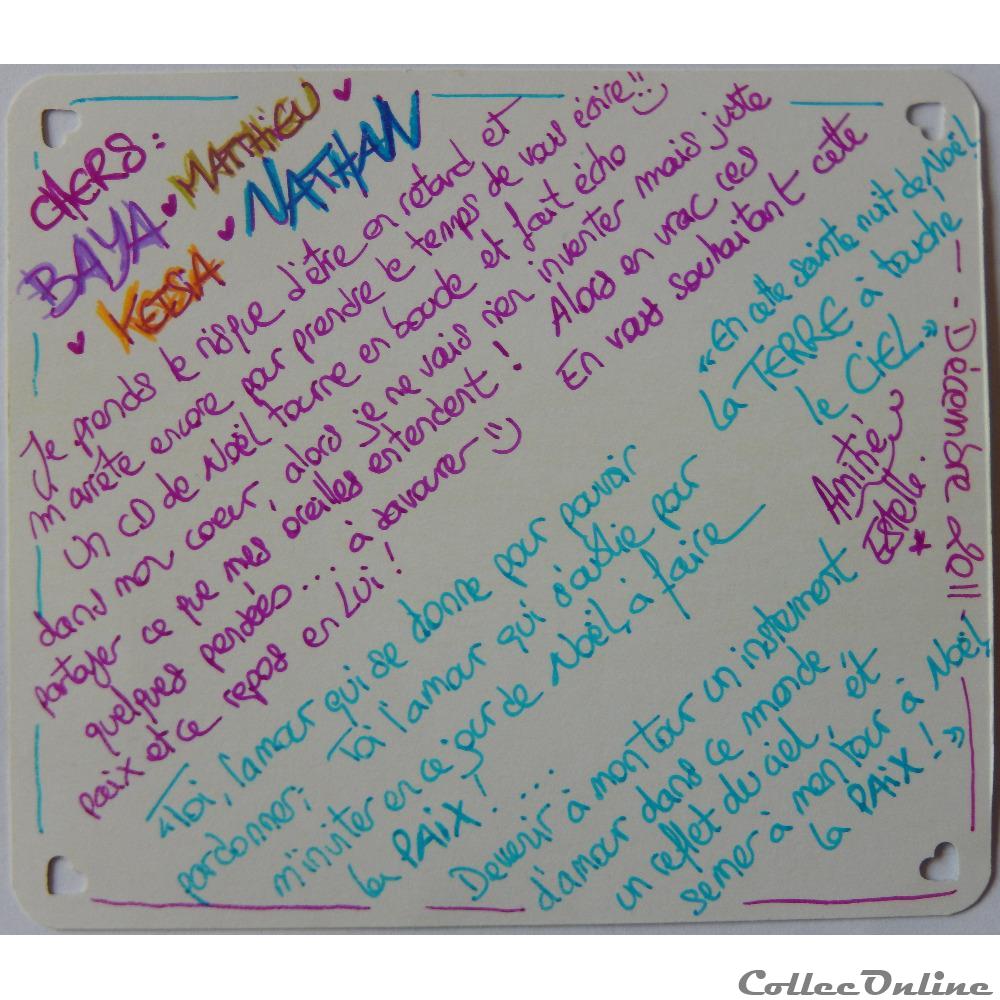 CHERS:
BAYA ♥ MATTHIEU ♥
♥ KEZIA ♥ NATHAN
Je prends le risque d'être en retard et
m'arrête encore pour prendre le temps de vous écrire!!
Un CD de Noël tourne en boucle et fait écho
dans mon coeur, alors je ne vais rien inventer mais juste
partager ce que mes oreilles entendent! Alors en vrac ces
quelques pensées... à savourer :) En vous souhaitant cette
paix et ce repos en Lui!
"Toi, l'amour qui se donne pour pouvoir
pardonner; Toi l'amour qui s'oublie pour
m'inviter en ce jour de Noël, à faire
la PAIX!...
Devenir à mon tour un instrument
d'amour dans ce monde
un reflet du ciel, et
semer à mon tour à Noël,
la PAIX!"
"En cette sainte nuit de Noël,
la TERRE a touché
le CIEL."
Amitié
Estelle.
- Décembre 2011 -
CollecOnline